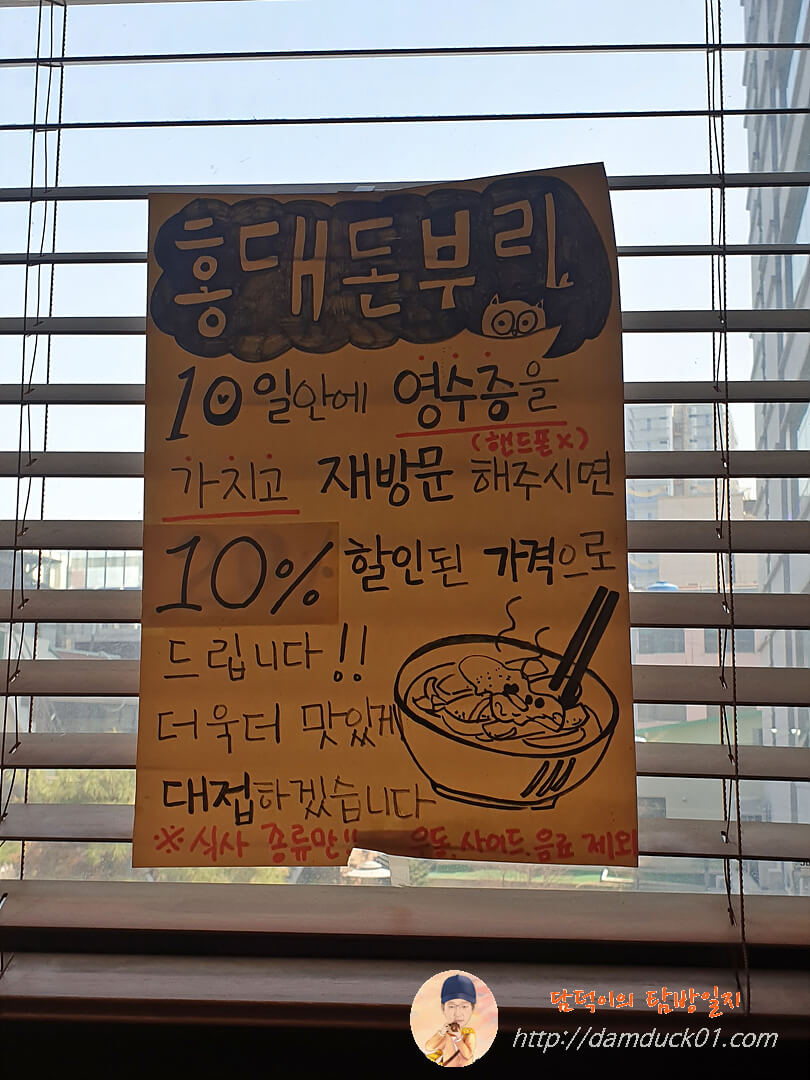 홍대돈부리
10일안에 영수증을
(핸드폰x)
가치고 재방문 해주시면
10% 할인된 가격으로
드립니다!!
더욱더 맛있게
대접하겠습니다
※식사 종류만!! 우동.사이드.음료 제외
담덕이의 탐방일지
http://damduck01.com